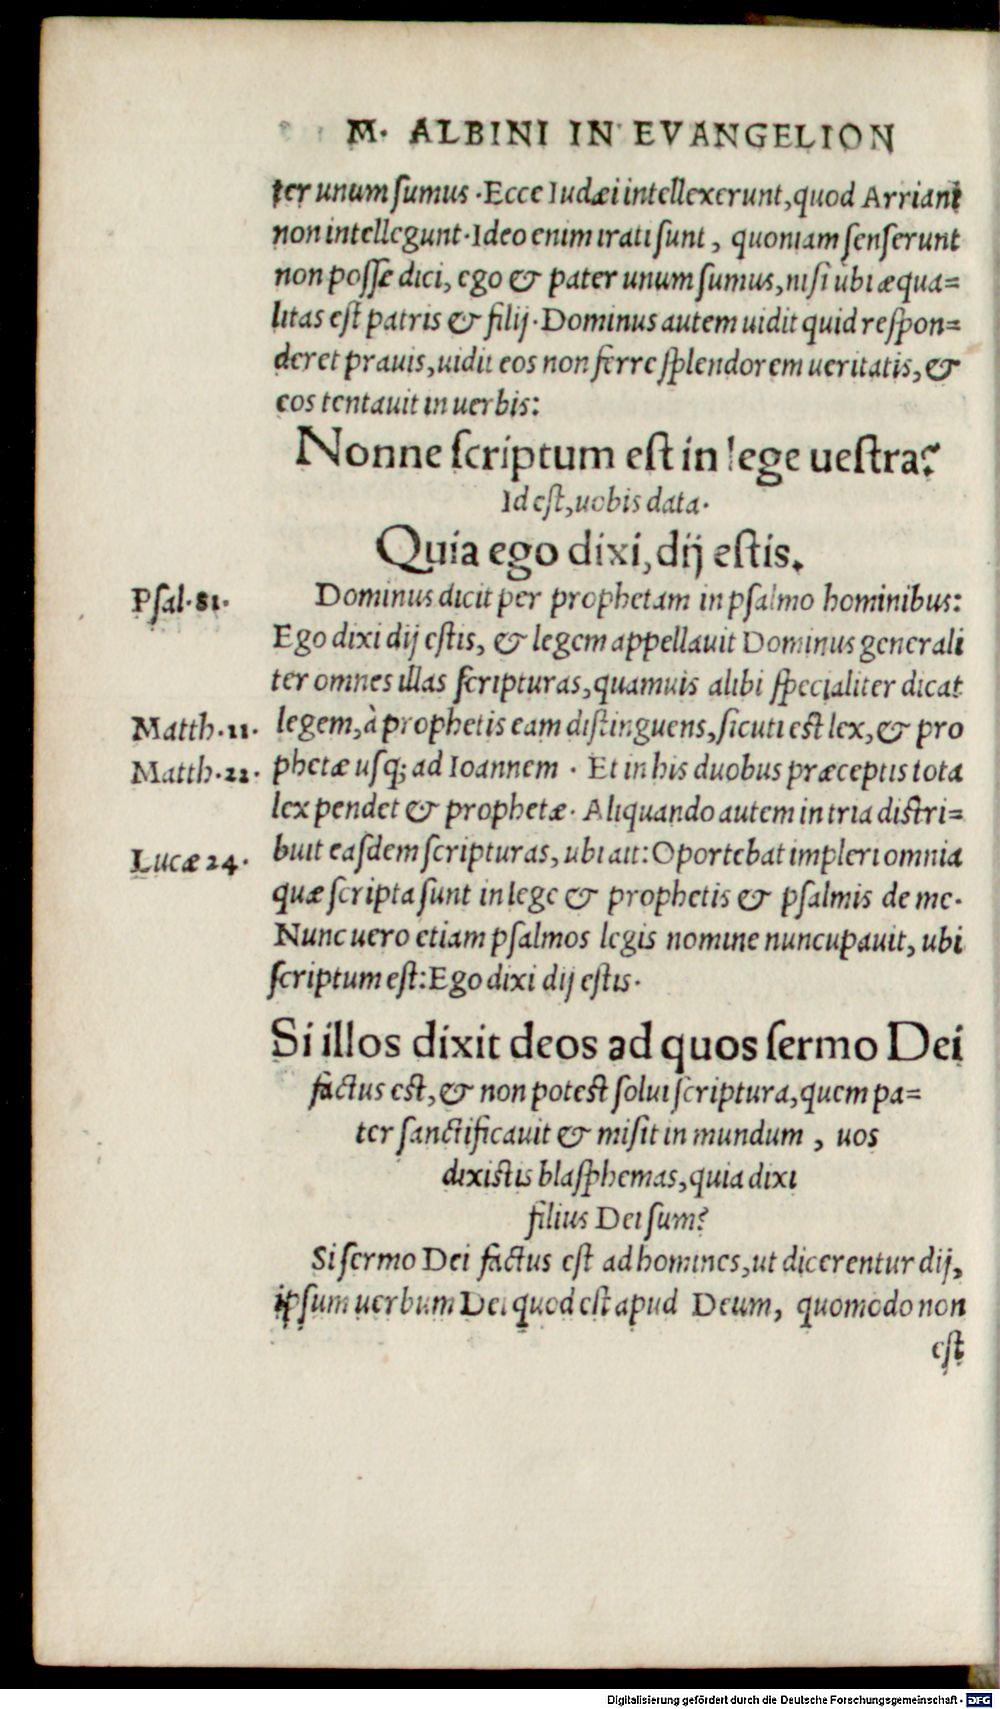 M. ALBINI IN EVANGELION
ter unum sumus. Ecce Iudæi intellexerunt, quod Arriani
non intellegunt. Ideo enim irati sunt, quoniam senserunt
non posse dici, ego & pater unum sumus, nisi ubi æqua=
litas est patris & filij. Dominus autem uidit quid respon=
deret prauis, uidit eos non ferre splendorem ueritatis, &
eos tentauit in uerbis:
Nonne scriptum est in lege uestra?
Id est, uobis data.
Quia ego dixi, dij estis.
Psal. 81. Dominus dicit per prophetam in psalmo hominibus:
Ego dixi dij estis, & legem appellauit Dominus generali
ter omnes illas scripturas, quamuis alibi specialiter dicat
Matth. 11. legem, à prophetis eam distinguens, sicuti est lex, & pro
Matth. 22. phetæ usq; ad Ioannem. Et in his duobus præceptis tota
lex pendet & prophetæ. Aliquando autem in tria distri=
Lucæ 24. buit easdem scripturas, ubi ait: Oportebat impleri omnia
quæ scripta sunt in lege & prophetis & psalmis de me.
Nunc uero etiam psalmos legis nomine nuncupauit, ubi
scriptum est: Ego dixi dij estis.
Si illos dixit deos ad quos sermo Dei
factus est, & non potest solui scriptura, quem pa=
ter sanctificauit & misit in mundum, uos
dixistis blasphemas, quia dixi
filius Dei sum?
Si sermo Dei factus est ad homines, ut dicerentur dij,
ipsum uerbum Dei quod est apud Deum, quomodo non
est
Digitalisierung gefördert durch die Deutsche Forschungsgemeinschaft - DFG